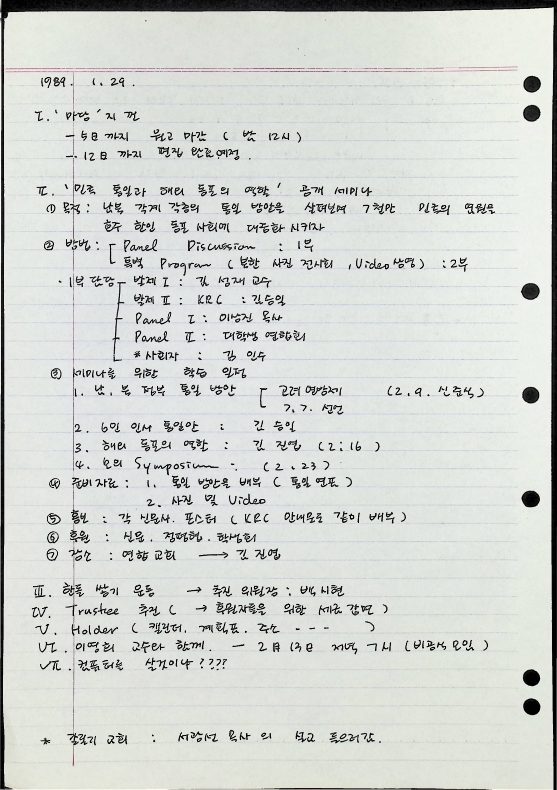 1989. 1. 29.
I. '마당'지 건
- 5日까지 원고 마감 ( 밤 12시 )
- 12日까지 편집 완료예정.
II. '민족 통일과 해외 동포의 역할' 공개 세미나
① 목적 : 남북 각계 각층의 통일 방안을 살펴보며 7천만 민족의 염원을
호주 한인 동포 사회에 대중화 시키자
② 방법 : Panel Discussion : 1부
특별 Program ( 북한 사진 전시회, Video 상영 ) : 2부
· 1부 담당 발제 I : 김 성재 교수
발제 II : KRC : 김승일
Panel I : 이상진 목사
Panel II : 대학생 연합회
* 사회자 : 김 인수
③ 세미나를 위한 학습 일정
1. 남, 북 정부 통일 방안 고려 연방제 (2. 9. 신준식)
7. 7. 선언
2. 6인 인사 통일안 : 김 승일
3. 해외 동포의 역할 : 김 진엽 (2; 16)
4. 모의 Symposium : (2. 23)
④ 준비자료 : 1. 통일 방안을 배부 ( 통일 연표 )
2. 사진 및 Video
⑤ 홍보 : 각 신문사. 포스터 ( KRC 안내문도 같이 배부 )
⑥ 후원 : 신문. 정평협. 학생회
⑦ 장소 : 연합 교회 → 김 진엽
III. 한톨 쌓기 운동 → 추진 위원장 : 박 시현
IV. Trustee 추진 ( → 후원자들을 위한 세금 감면 )
V. Holder ( 캘린더, 계획표, 주소 - - - )
VI. 이영희 교수와 함께. - 2月 13日 저녁 7시 (비공식 모임)
VII. 컴퓨터를 살것이냐 ????
* 갈릴리 교회 : 서광선 목사의 설교 들으러감.